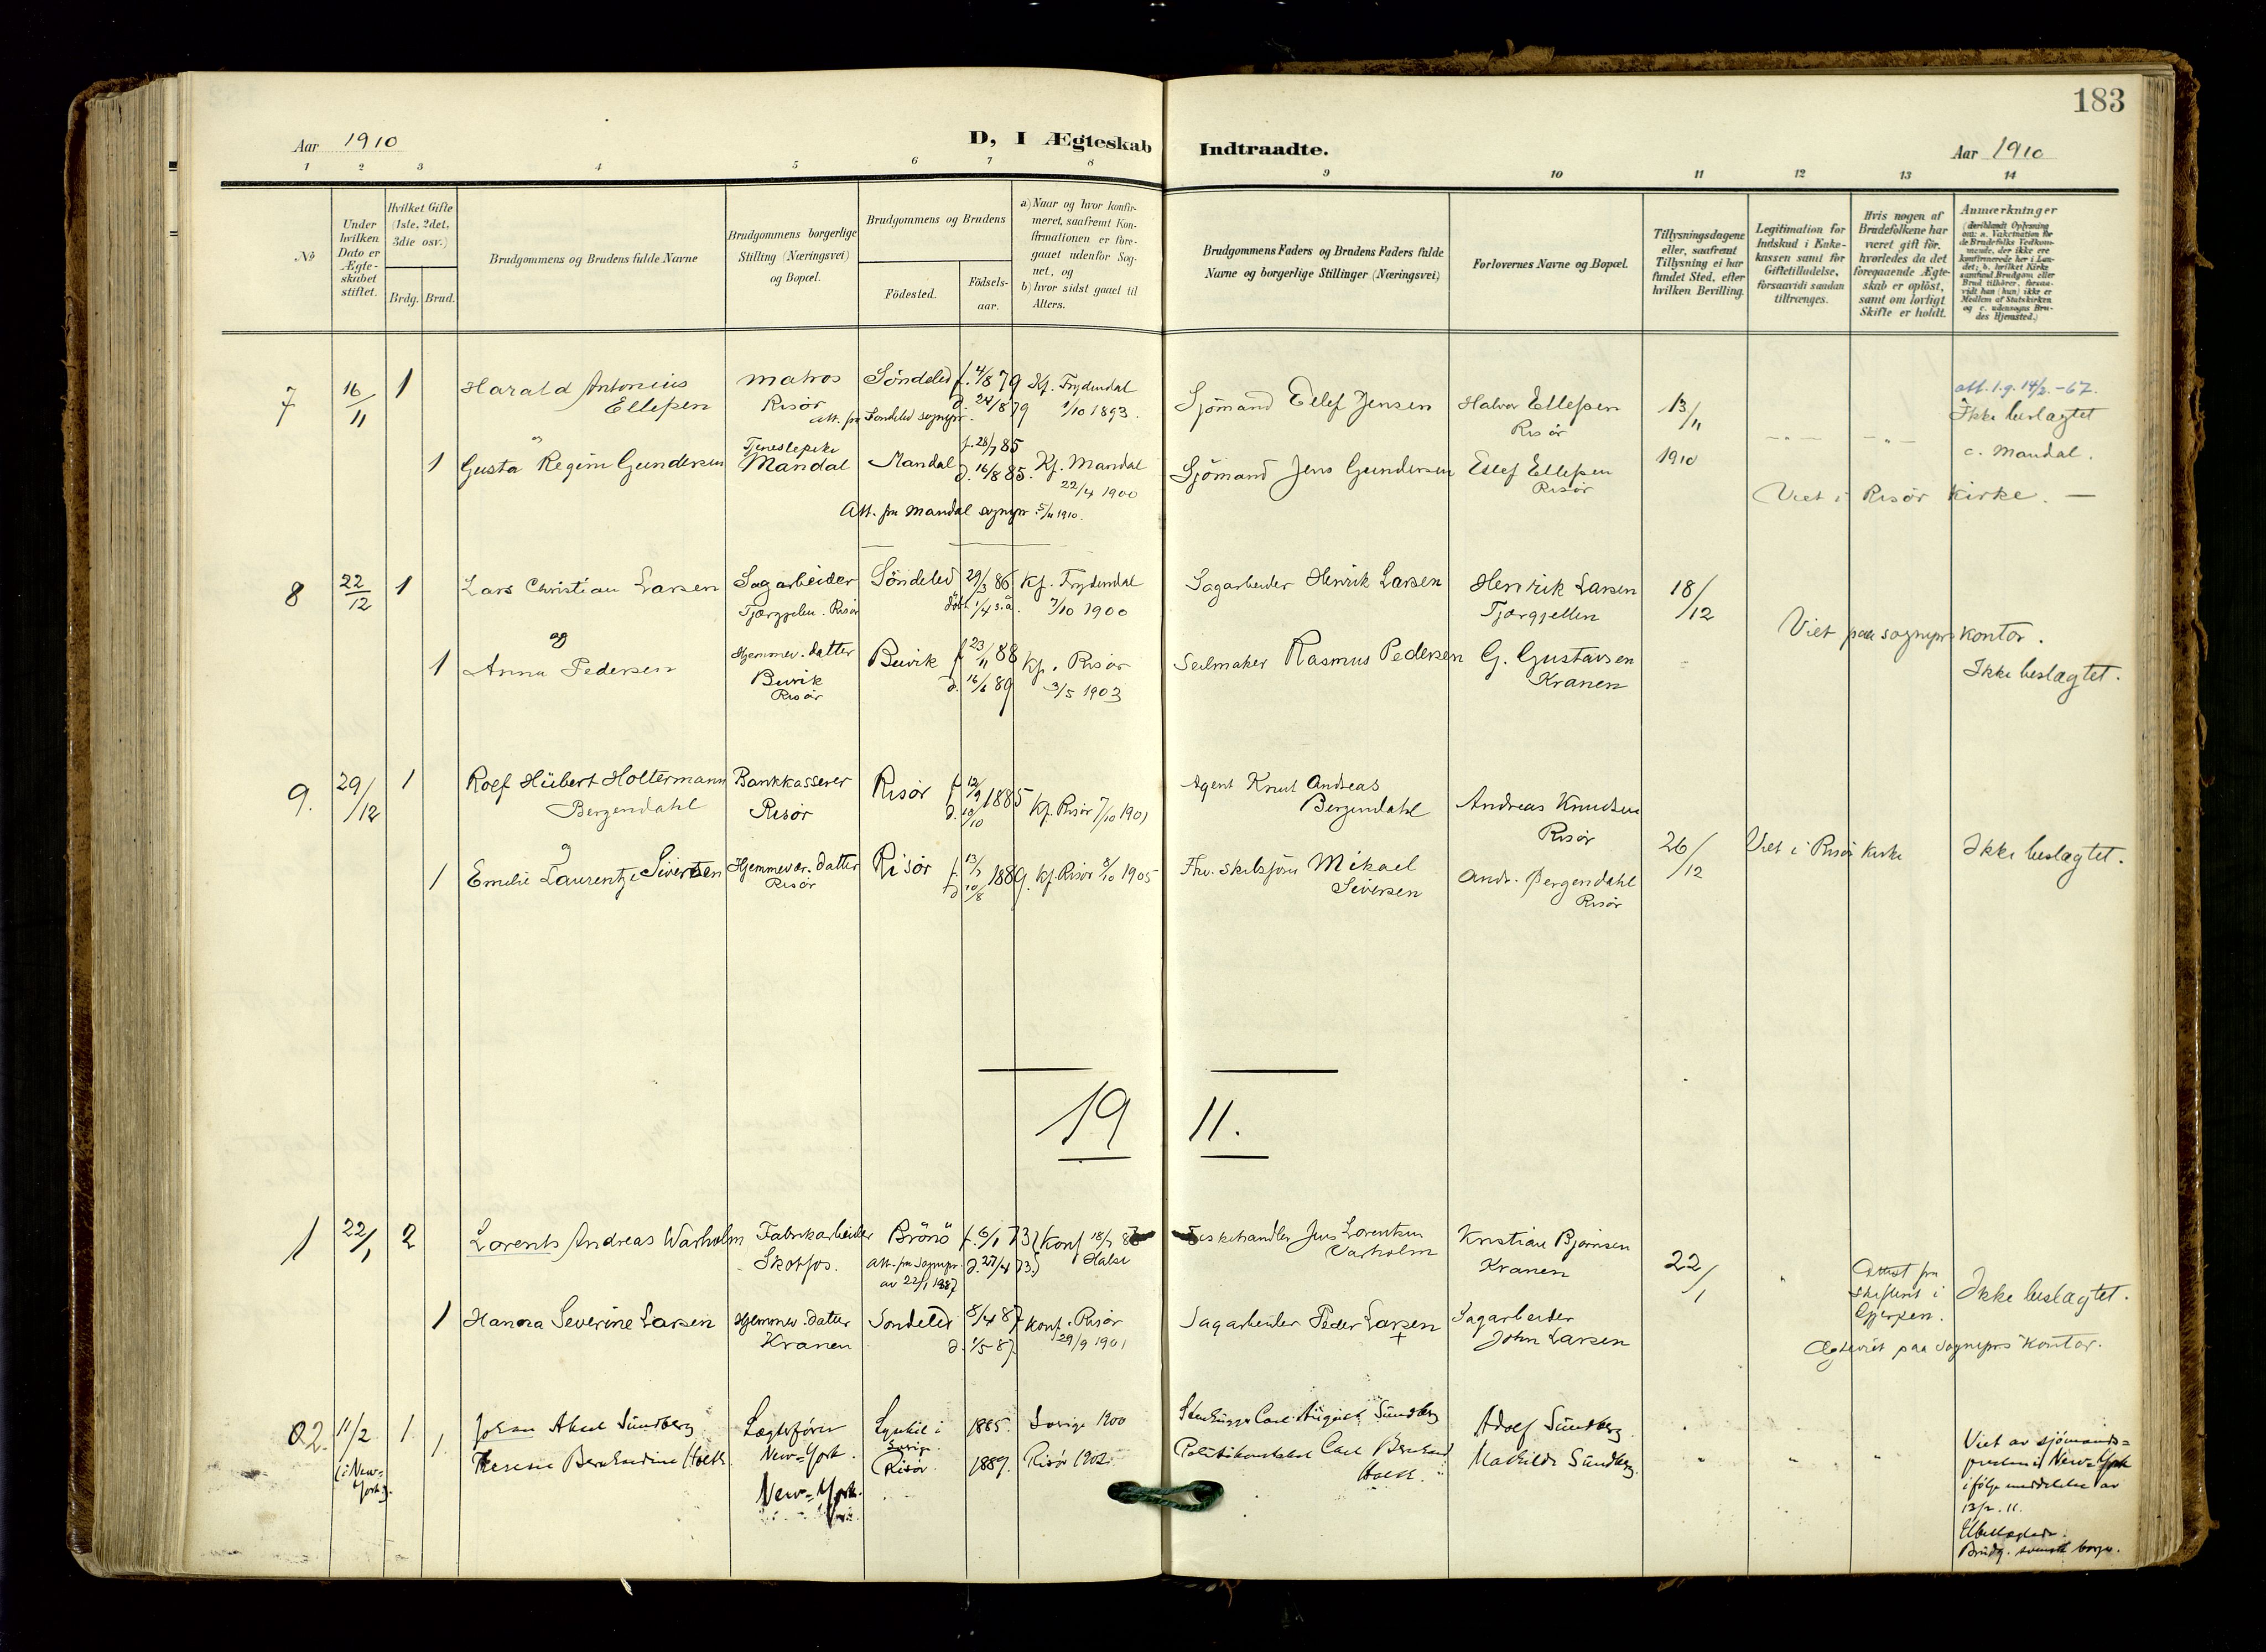 183
Aar 1910
D, I Ægteskab Indtraadte.
Aar 1910
1 2 3 4 5 6 7 8 9 10 11 12 13 14
No
Under hvilken Dato er Ægteskabet stiftet.
Hvilket Gifte (1ste, 2det, 3die osv.)
Brdg. Brud.
Brudgommens og Brudens fulde Navne
Brudgommens borgerlige Stilling (Næringsvei) og Bopæl.
Brudgommens og Brudens
Födested.
Födselsaar.
a) Naar og hvor konfirmeret, saafremt Konfirmationen er foregaaet udenfor Sognet, og
b) hvor sidst gaaet til Alters.
Brudgommens Faders og Brudens Faders fulde Navne og borgerlige Stillinger (Næringsvei)
Forlovernes Navne og Bopæl.
Tillysningsdagene eller, saafremt Tillysning ei har fundet Sted, efter hvilken Bevilling.
Legitimation for Indskud i Enkekassen samt for Giftetilladelse, forsaavidt saadan tiltrænges.
Hvis nogen af Brudefolkene har været gift för, hvorledes da det foregaaende Ægteskab er oplöst, samt om lovligt Skifte er holdt.
Anmærkninger
(deriblandt Oplysning om: a. Vakcination for de Brudefolks Vedkommende, der ikke ere konfirmerede her i Landet; b. hvilket Kirkesamfund Brudgom eller Brud tilhörer, forsaavidt han (hun) ikke er Medlem af Statskirken og c. udensogns Brudes Hjemsted.)
7 16/11 1 Harald Antonius Ellefsen
Matros Risør
Söndeled f. 4/8 79 d. 24/8 79
Att. fra Søndeled sognepr.
Kf. Frydendal 1/10 1893.
Sjömand Ellef Jensen
Halvor Ellefsen Risör
13/11 1910
att. 1.g. 14/2.-67.
Ikke beslagtet
1 Gusta Regine Gundersen
Tjenestepike Mandal
Mandal f. 28/7 85 d. 16/8 85.
Kf. Mandal 22/4 1900
Sjömand Jens Gundersen
Ellef Ellefsen Risör
c. Mandal.
Viet i Risör Kirke. —
Att. fra Mandal sognepr. 5/11 1910.
8 22/12 1 Lars Christian Larsen
Sagarbeider
Tjærgjelen. Risör
Söndeled 29/3 86
döbt 1/4 s.a.
Kf. Frydendal 7/10 1900
Sagarbeider Henrik Larsen
Henrik Larsen Tjærgjellen
18/12
Viet paa sogneprs kontor.
og
1 Anna Pedersen
Hjemmev. datter
Buvik Risör
Buvik f. 23/11 88 d. 16/6 89
Kf. Risør 3/5 1903
Seilmaker Rasmus Pedersen
G. Gustavsen Kranen
Ikke beslagtet.
9. 29/12 1 Rolf Hübert Holtermann Bergendahl
Bankkasserer Risør
Risør f. 12/9 1885 d. 10/10
Kf. Risör 7/10 1901
Agent Knut Andreas Bergendahl
Andreas Knudsen Risör
26/12
Viet i Risör Kirke
Ikke beslagtet.
og
1 Emelie Laurentze Sivertsen
Hjemmevær. datter Risör
Risør f. 13/7 1889. d. 10/8
Kf. Risör 8/10 1905
Fhv. skibsförer Mikael Siversen
Andr. Bergendahl Risör
19 11.
1 22/1 2 Lorents Andreas Warholm
Fabrikarbeider Skotfos.
Brönö f. 6/1 73 d. 27/4 73.
att. fra sognepr. av 22/1 1887
Konf 18/7 Halse
Fiskehandler Jens Lorentsen Varholm
Kristian Bjørnsen Kranen
22/1
Attest fra skifteret i Gjerpen.
Ikke beslagtet.
1 Hanna Severine Larsen
Hjemmev. datter Kranen
Søndeled 8/4 87 d. 1/5 87.
Konf. Risør 29/9 1901
Sagarbeider Peder Larsen +
Sagarbeider John Larsen
Ægteviet paa sogneprs kontor.
2. 11/2 (i New-York.) 1. Johan Aksel Sundberg
Lægterfører New-York.
Lysekil i Sverige 1885.
Sverige 1900
Stenhugger Carl August Sundberg
Adolf Sundberg
1. Therese Bernhardine Holth
New-York.
Risör. 1889.
Risör 1902.
Politikonstabel Carl Bernhard Holth.
Mathilde Sundberg.
Viet av sjömands=
presten i New-York
ifölge meddelelse av
13/2. 11.
Ubeslægtede.
Brudg. svensk borger.